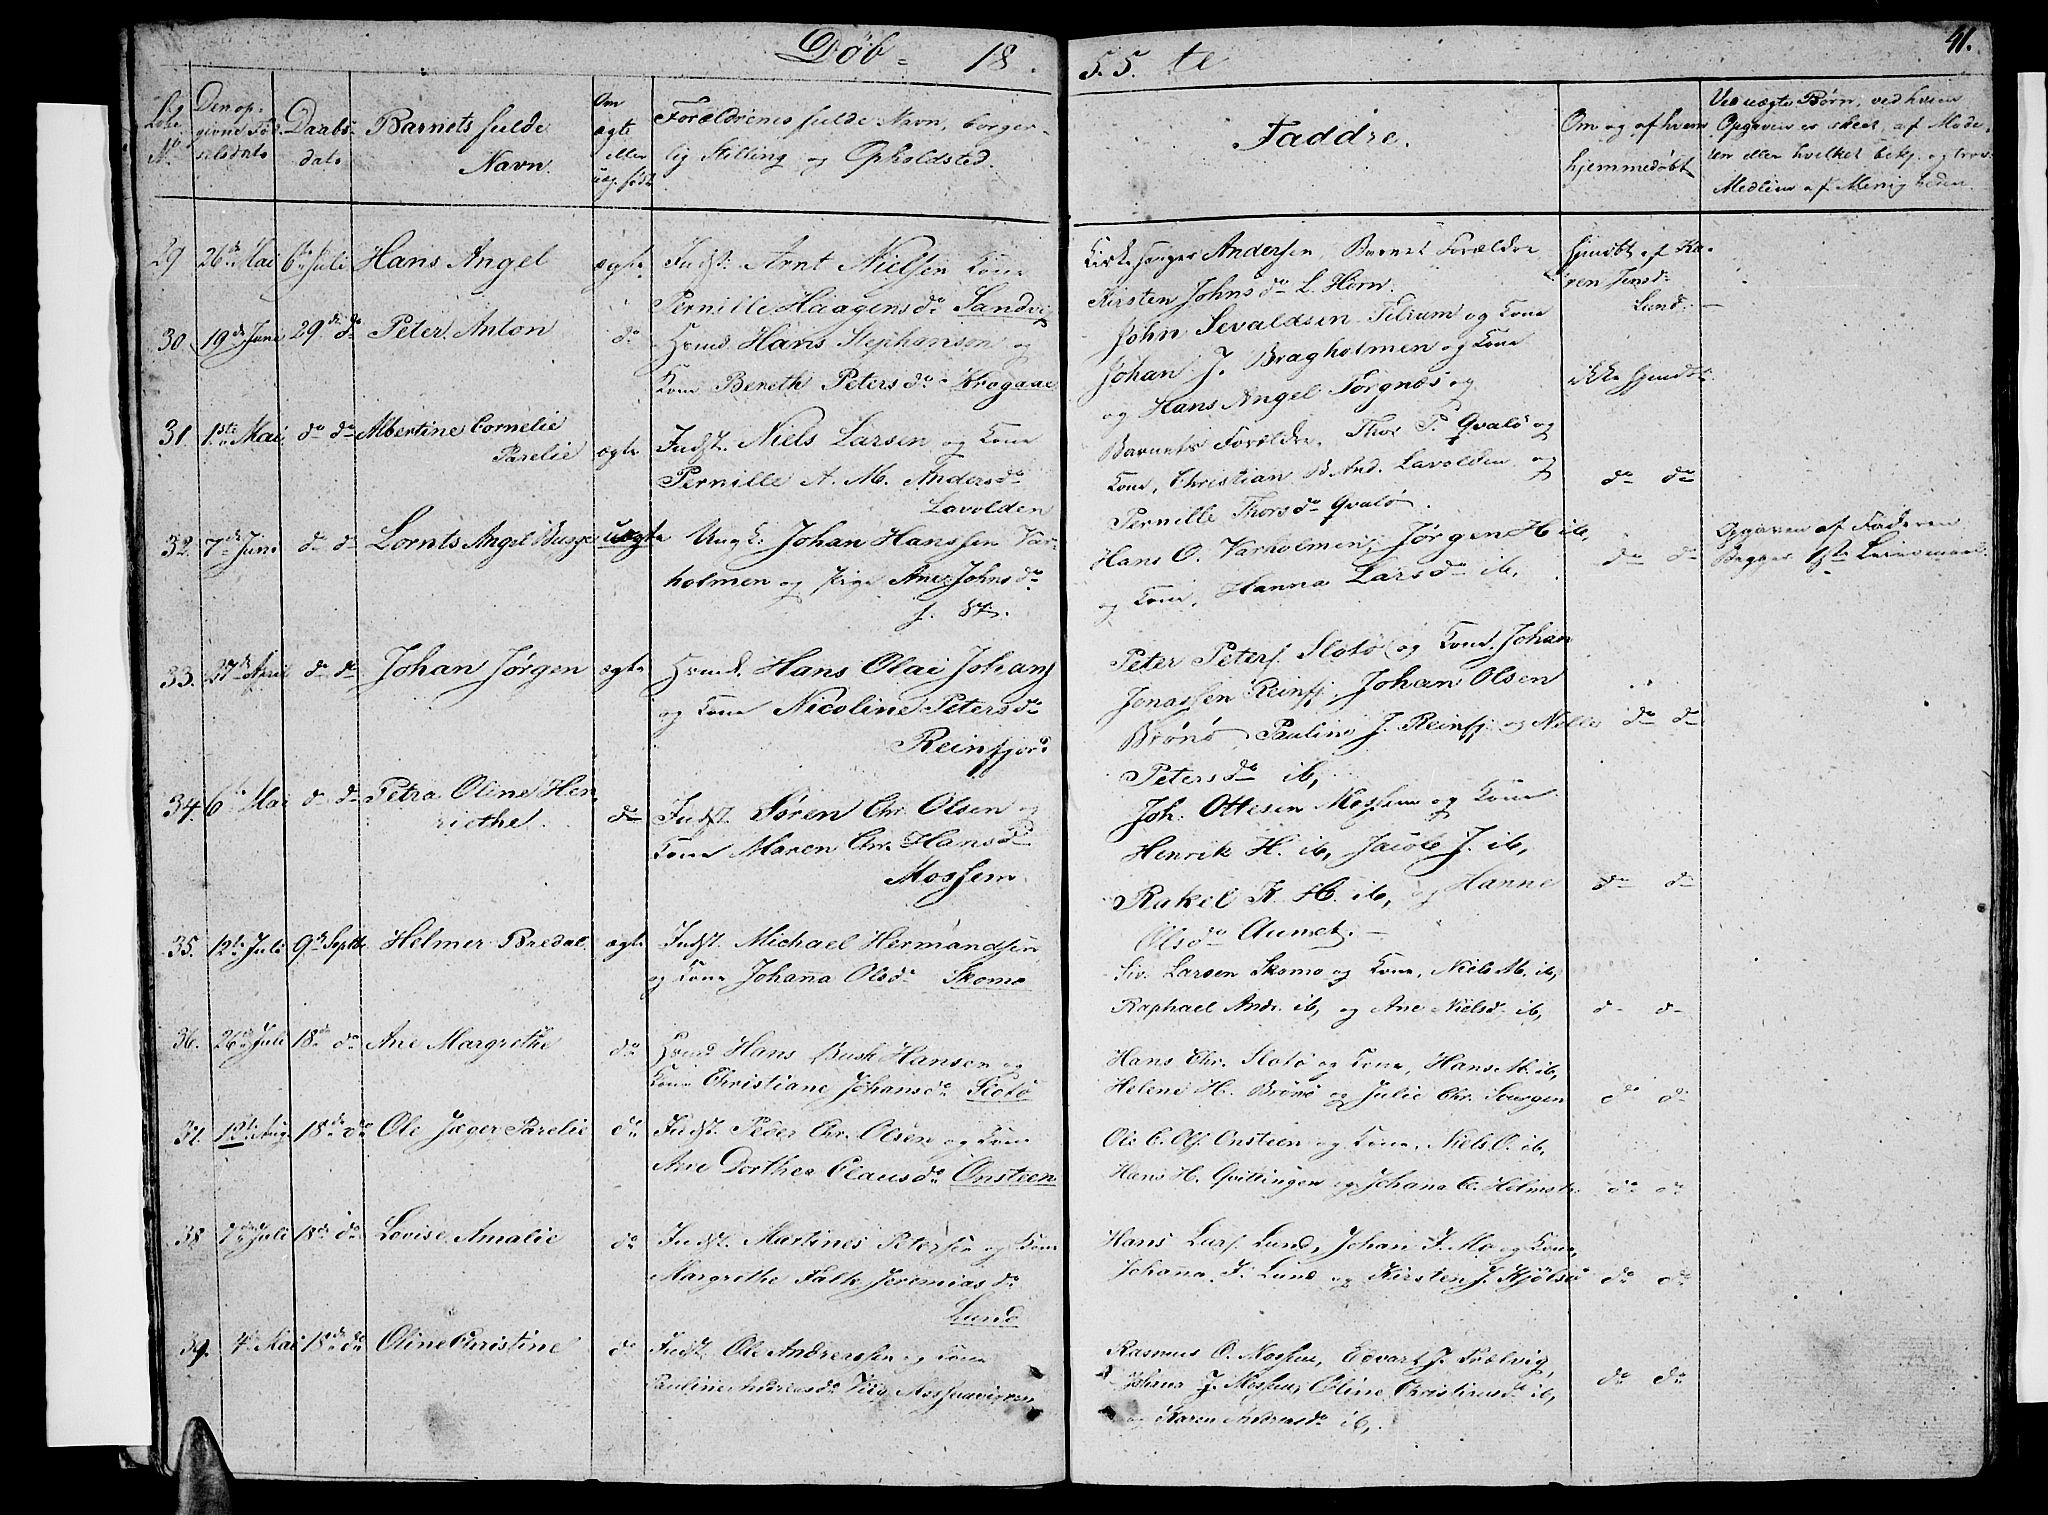 Døb- 18 55 te
41.
Løbe No
Den opgivne Fødselsdato
Daabsdato
Barnets fulde Navn.
Om ægte eller uæg. født
Forældrenes fulde Navn, borgerlig Stilling og Opholdsted.
Faddre.
Om og af hvem hjemmedøbt
Ved uægte Børn, ved hvem Opgaven er skeet, af Moderen eller hvilket bekj. og trov. Medlem af Menigheden
29 26de Mai 6te Juli Hans Angel ægte Indst. Arnt Nielsen Kone
Pernille Haagensdr Sandvig
Kirkesanger Andersen, Barnets Forældre
Kirsten Johnsdr L. Horn.
Hjmdbt af Karen Jensd. Lund.
30. 19de Juni 29de do Peter Anton do Grmd. Hans Stephansen og
Kone Bereth Petersdr Krogaae
John Sevaldsen Tilrum og Kone
Johan J. Bragholmen og Kone
og Hans Angel Torgnæs og
ikke hjmdbt
31. 1ste Mai do do Albertine Cornelie
Parelie ægte Indst. Niels Larsen og Kone
Pernille A. M. Andersdr
Lavolden
Barnets Forældre, Thor P. Qvalø og
Kone, Christian B. And. Lavolden og
Pernille Thorsdr Qvalø.
do do
32. 7de Juni do do Lornts Angel Busze uægte Ungk. Johan Hanssen Varholmen
og Pige Ane Johnsdr
Hans O. Varholmen, Jørgen H. ib,
og Kone, Hanna Larsdr ib,
do do
Opgaven af Faderen
Begges 1ste Leiermaal.
33. 27de April do do Johan Jørgen ægte Grmd. Hans Olai Johans
og Kone Nicoline Petersdr
Reinfjord
Peter Peters. Slotø og Kone. Johan
Jonassen Reinfj. Johan Olsen
Brønø, Pauline J. Reinfj. og Nille
Petersdr ib,
do do
34. 6te Mai do do Petra Oline Henriethe. do Indst. Søren Chr. Olsen og
Kone Maren Chr. Hansdr
Mossem.
Joh. Ottesen Mossem og Kone
Henrik H. ib, Jacob J. ib,
Rakel K. H. ib, og Hanne
Olsdr Aunet.
do do
35. 12te Juli 9de Septbr Helmer Bredal. ægte Indst. Michael Hermandsen
og Kone Johanna Olsdr Skomo
Siv. Larsen Skomo og Kone, Niels M. ib,
Raphael Andr. ib, og Ane Nielsd. ib,
do do
36. 26de Juli 18de do Ane Margrethe do Grmd Hans Bush Hansen og
Kone Christiane Johansdr Slotø
Hans Chr. Slotø og Kone, Hans M. ib,
Helene H. Brønø og Julie Chr.
do do
37. 1ste Aug. 18de do Ole Jæger Parelie do Indst. Peder Chr. Olsen og Kone
Ane Dorthea Clausdr Onsteen
Ole C. Ols. Onstien og Kone, Niels O. ib,
Hans H. Qvittingen og Johana C.
do do
38. 7de Juli 18de do Lovise Amalie do Indst. Martines Petersen og Kone
Margrethe Falk Jeremiasdr
Lund
Hans Lars. Lund, Johan J. Mo og Kone,
Johanna J. Lund og Kirsten J.
do do
39. 4de Mai 18de do Oline Christine do Indst. Ole Andreassen og Kone
Pauline Andreasdr
Rasmus O. Mossem, Edvart J.
Johan J. Mossem, Oline Christinsdr ib,
og Karen Andreasdr ib,
do do